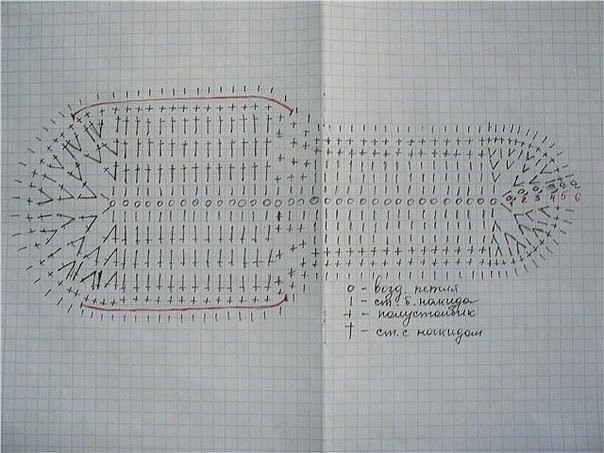 1 2 3 4 5 6
о - возд. петля
| - ст. б. накида
+ - полустолбик
† - ст. с накидом